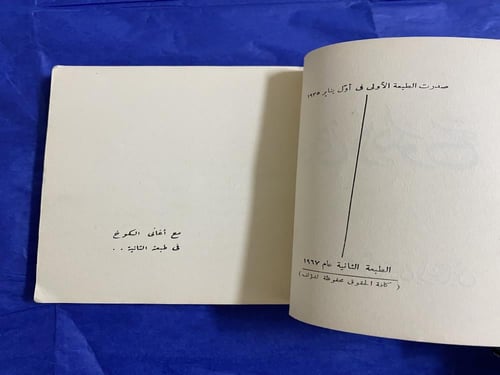 صدرت الطبعة الأولى فى أوّل يناير ١٩٣٥
الطبعة الثانية عام ١٩٦٧
( كافة الحقوق محفوظة للمؤلف )
مع أغانى الكوخ
فى طبعته الثانية . .